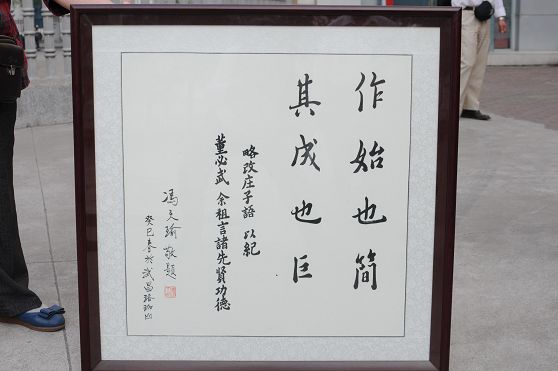 作始也簡
其成也巨
略改庄子語 以紀
董必武 余祖言諸先賢功德
馮天瑜 敬題
癸巳春於武昌珞珈山